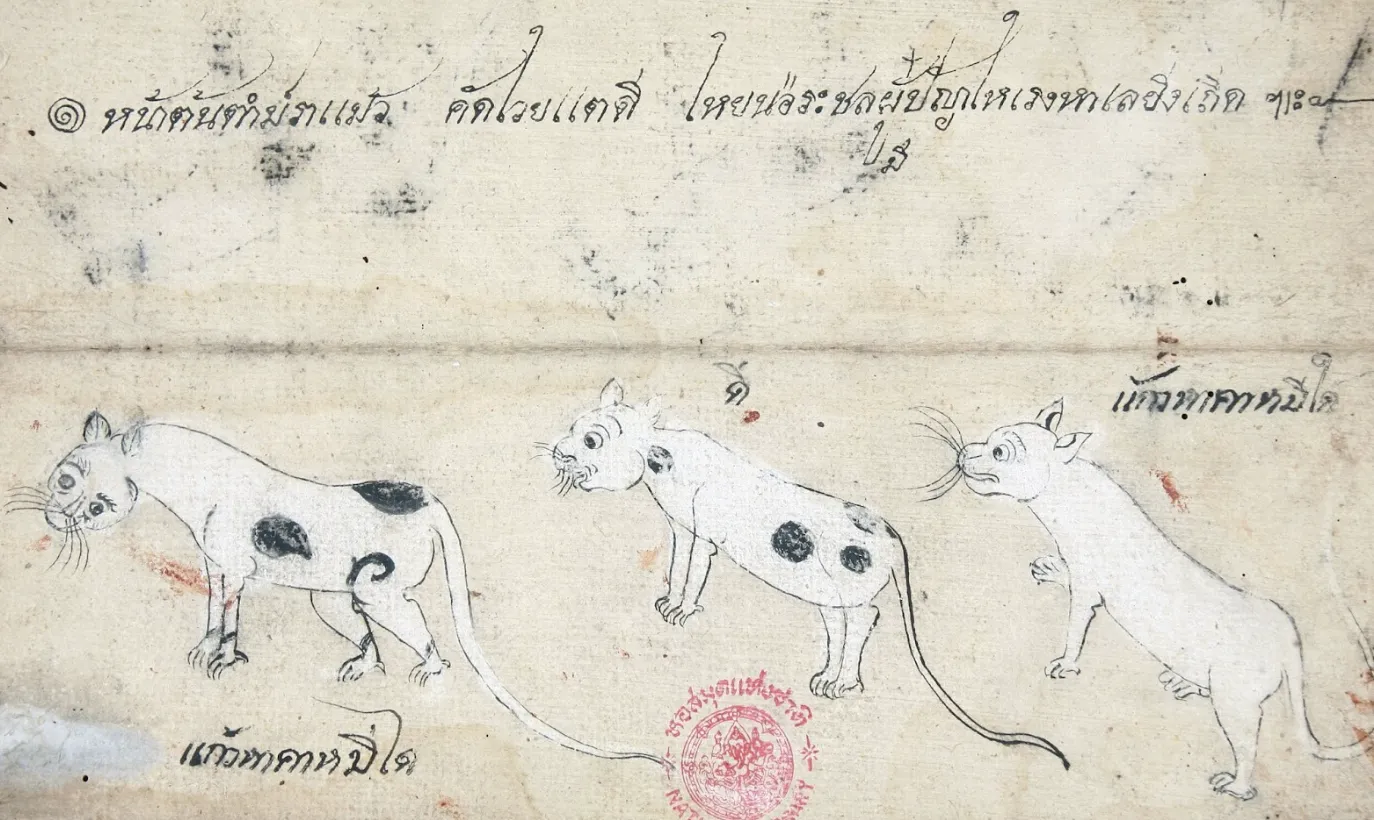 ๑ หน้าต้นตำม์ราแม้ว คัดไวยแตดี ไหยน่อระชลผู้ปัญาไหเรงหาเลยิ่งเถิด ฯะ๛
ปมี
ดี
แก้วหาคาหมีไต
แก้วหาคาหมี่ไต
หอสมุดแห่งชาติ
NAT